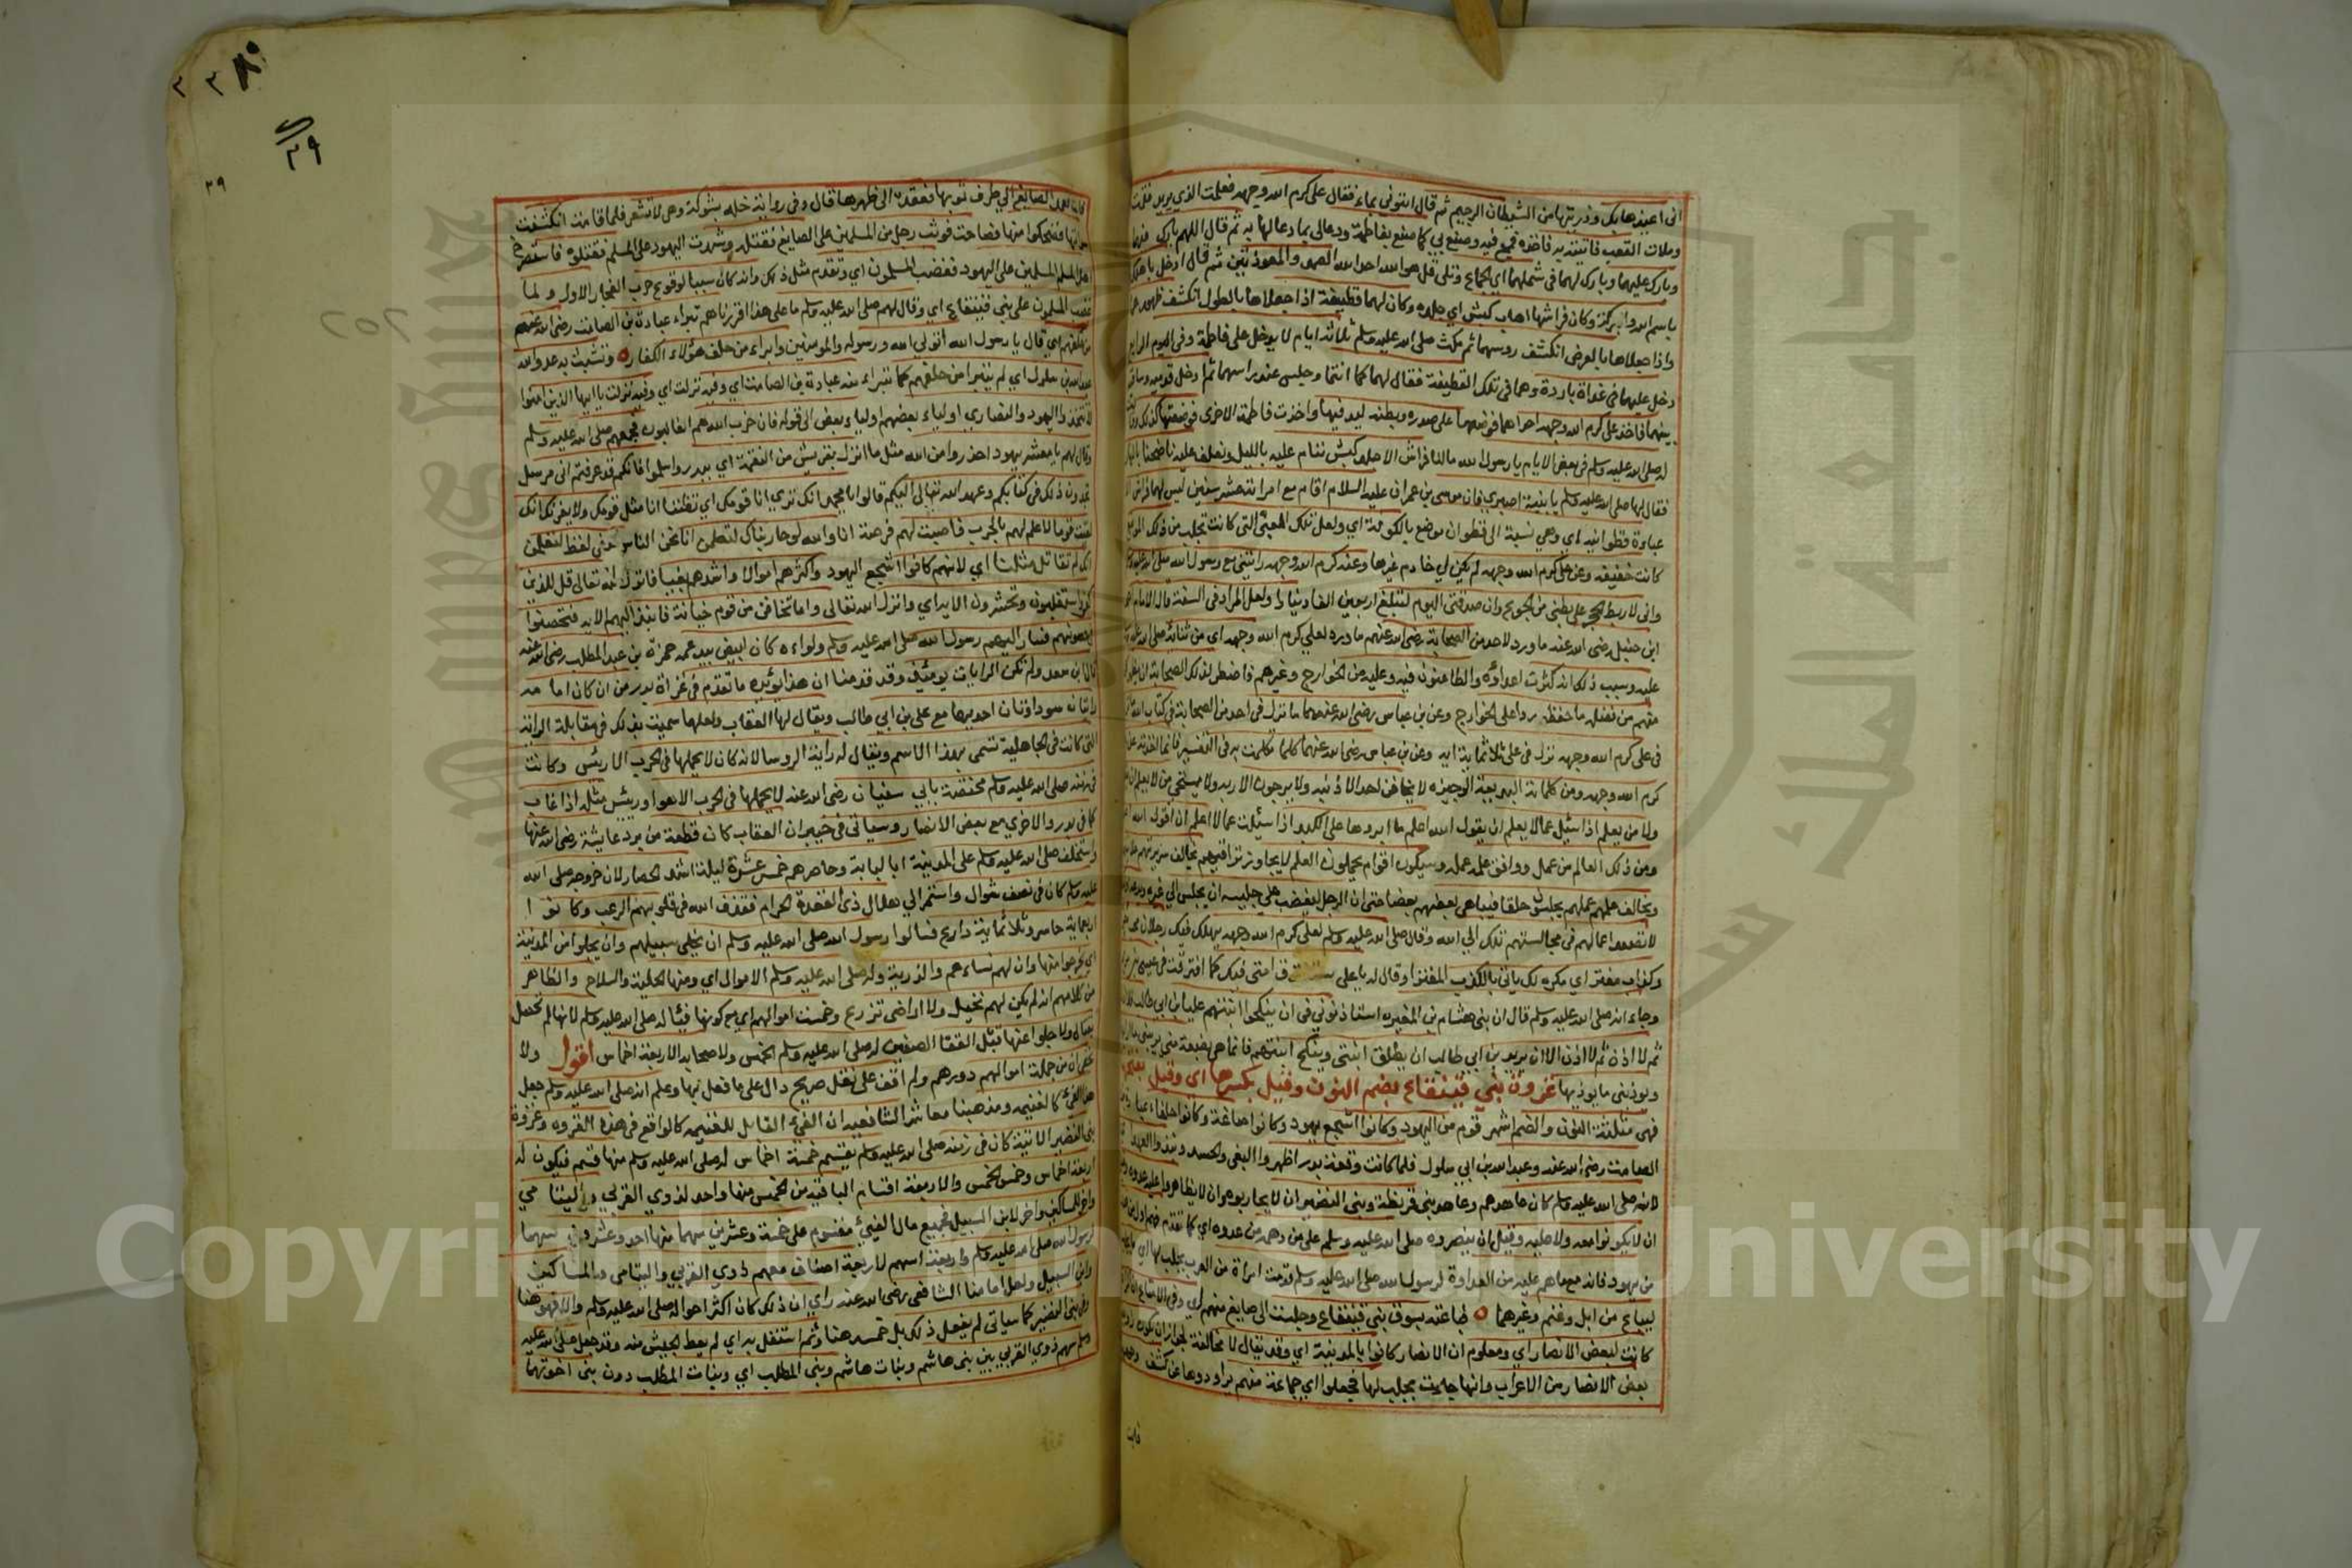 انى اعيذها بك وذريتها من الشيطان الرجيم ثم قال ائتونى بماء فقال على كرم الله وجهه فعلمت الذى يريد فقمت
وملات القعب فاتيته به فاخذه فمج فيه وصنع بي كما صنع بفاطمة ودعالى بما دعا لها به ثم قال اللهم بارك فيهما
وبارك عليهما وبارك لهما فى شملهما اي الجماع وتلى قل هو الله احد الله الصمد والمعوذتين ثم قال ادخل باهلك
باسم الله والبركة وكان فراشها اهاب كبش اي جلده وكان لهما قطيفة اذا جعلاها بالطول انكشف ظهورهما
واذا جعلاها بالعرض انكشف روسهما ثم مكث صلى الله عليه وسلم ثلاثة ايام لا يدخل على فاطمة وفى اليوم الرابع
دخل عليهما فى غداة باردة وهما فى تلك القطيفة فقال لهما كما انتما وجلس عند راسهما ثم ادخل قدميه وساقيه
بينهما فاخذ على كرم الله وجهه احداهما فوضعها على صدره وبطنه ليدفيها واخذت فاطمة الاخرى فوضعتها كذلك
له صلى الله عليه وسلم فى بعض الايام يا رسول الله مالنا فراش الا جلد كبش ننام عليه بالليل ونعلف عليه ناضحنا بالنهار
فقال لها صلى الله عليه وسلم يا بنية اصبري فان موسى بن عمران عليه السلام اقام مع امراته عشر سنين ليس لهما فراش الا
عباءة قطوانية اي وهي نسبة الى قطوان موضع بالكوفة اي ولعل تلك العبي التى كانت تجلب من ذلك الموضع
كانت خفيفة وعن على كرم الله وجهه لم يكن لي خادم غيرها وعنه كرم الله وجهه رايتنى مع رسول الله صلى الله عليه وسلم
وانى لاربط الحجر على بطنى من الجوع وان صدقتى اليوم لتبلغ اربعين الف دينارا ولعل المراد فى السنة قال الامام احمد
ابن حنبل رضى الله عنه ما ورد لاحد من الصحابة رضى الله عنهم ما ورد لعلي كرم الله وجهه اي من ثنائه صلى الله عليه
عليه وسبب ذلك انه كثرت اعداؤه والطاعنون فيه وعليه من الخوارج وغيرهم فاضطر لذلك الصحابة ان يظهر
منهم من فضله ما حفظه ردا على الخوارج وعن بن عباس رضى الله عنهما ما نزل فى احد من الصحابة فى كتاب الله
فى على كرم الله وجهه نزل فى على ثلاثماية اية وعن بن عباس رضى الله عنهما كلما تكلمت به فى التفسير فانما اخذته عن
كرم الله وجهه ومن كلماته البديعة الوجيزه لا يخافن احد الا ذنبه ولا يرجون الا ربه ولا يستحى من لا يعلم ان
ولا من يعلم اذا سئل عما لا يعلم ان يقول الله اعلم ما ابردها على الكبد اذا سئلت عما لا اعلم ان اقول الله
ومن ذلك العالم من عمل ووافق علمه عمله وسيكون اقوام يحملون العلم لا يجاوز تراقيهم تخالف سريرتهم
ويخالف علمهم عملهم يجلسون حلقا فيباهى بعضهم بعضا حتى ان الرجل ليغضب على جليسه ان يجلس الى غيره
لا تصعد اعمالهم فى مجالستهم تلك الى الله وقال صلى الله عليه وسلم لعلي كرم الله وجهه يهلك فيك رجلان
وكذاب مفتر اي يكره لك ياتى بالكذب المفترا وقال له يا على امتى فيك كما افترقت فى عيسى بن
وجاء انه صلى الله عليه وسلم قال ان بنى هشام بن المغيره استاذنونى فى ان ينكحوا ابنتهم على بن ابى طالب
ثم لا اذن ثم لا اذن الا ان يريد بن ابي طالب ان يطلق ابنتى وينكح ابنتهم فانما هى بضعة منى يريبنى ما
ويوذينى ما يوذيها غزوة بنى قينقاع بضم النون وقيل بكسرها اي وقيل
فهى مثلثة النون والضم اشهر قوم من اليهود وكانوا اشجع يهود وكانوا صاغة وكانوا حلفاء
الصامت رضى الله عنه وعبد الله بن ابي سلول فلما كانت وقعة بدر اظهروا البغى والحسد ونبذوا العهد
لانه صلى الله عليه وسلم كان عاهدهم وعاهد بنى قريظة وبنى النضير ان لا يحاربوه وان لا يظاهروا عليه عدوه
ان لا يكونوا معه ولا عليه وقيل ان ينصروه صلى الله عليه وسلم على من دهمه من عدوه اي كما تقدم
من يهود فانه مع ماهم عليه من العداوة لرسول الله صلى الله عليه وسلم قدمت امراة من العرب بجلب لها اي
ليباع من ابل وغنم وغيرهما فباعته بسوق بنى قينقاع وجلست الى صايغ منهم اي وفى الامتاع ان
كانت لبعض الانصار اي ومعلوم ان الانصار كانوا بالمدينة اي وقد يقال لا مخالفة لجواز ان تكون زوجة
بعض الانصار من الاعراب وانها جاءت بجلب لها فجعلوا اي جماعة منهم يراودوها عن كشف
فابت
٢٩
الصايغ الى طرف ثوبها فعقده الى ظهرها قال وفى رواية خله بشوكة وهى لا تشعر فلما قامت انكشفت
سواتها فضحكوا منها فصاحت فوثب رجل من المسلمين على الصايغ فقتله وشدت اليهود على المسلم فقتلوه فاستصرخ
اهل المسلم المسلمين على اليهود فغضب المسلمون اي وتقدم مثل ذلك وانه كان سببا لوقوع حرب الفجار الاول ولما
غضب المسلمون على بنى قينقاع اي وقال لهم صلى الله عليه وسلم ما على هذا اقررناهم تبراء عبادة بن الصامت رضى الله عنهم
من حلفهم اي قال يا رسول الله اتولى الله ورسوله والمومنين وابراء من حلف هؤلاء الكفار وتشبث به عدو الله
عبد الله بن سلول اي لم يتبرا من حلفهم كما تبراء منه عبادة بن الصامت اي وفيه نزلت اي وفيه نزلت يا ايها الذين امنوا
لا تتخذوا اليهود والنصارى اولياء بعضهم اولياء بعض الى قوله فان حزب الله هم الغالبون فجمعهم صلى الله عليه وسلم
وقال لهم يا معشر يهود احذروا من الله مثل ما انزل بقريش من النقمة اي ببدر واسلموا فانكم قد عرفتم انى مرسل
تجدون ذلك فى كتابكم وعهد الله تعالى اليكم قالوا يا محمد انك ترى انا قومك اي تظننا انا مثل قومك ولا يغرنك انك
لقيت قوما لا علم لهم بالحرب فاصبت لهم فرصة انا والله لو حاربناك لتعلمن انا نحن الناس وفى لفظ لتعلمن
انك لم تقاتل مثلنا اي لانهم كانوا اشجع اليهود واكثرهم اموالا واشدهم بغيا فانزل الله تعالى قل للذين
كفروا ستغلبون وتحشرون الاية اي وانزل الله تعالى واما تخافن من قوم خيانة فانبذ اليهم الاية فتحصنوا
بحصونهم فسار اليهم رسول الله صلى الله عليه وسلم ولواءه كان ابيض بيد عمه حمزة بن عبد المطلب رضى الله عنه
قال ابن سعد ولم تكن الرايات يومئذ وقد قدمنا ان هذا يؤيده ما تقدم فى غزاة بدر من ان كان امامه
رايتان سوداوتان احديهما مع على بن ابي طالب ويقال لها العقاب ولعلها سميت بذلك فى مقابلة الراية
التى كانت فى الجاهلية تسمى بهذا الاسم ويقال له راية الروسا لانه كان لا يحملها فى الحرب الا رئيس وكانت
فى زمنه صلى الله عليه وسلم مختصة بابي سفيان رضى الله عنه لا يحملها فى الحرب الا هو او رئيس مثله اذا غاب
كما فى بدر والاخرى مع بعض الانصار وسياتى فى خيبر ان العقاب كان قطعة من برد عايشة رضى الله عنها
واستخلف صلى الله عليه وسلم على المدينة ابا لبابة وحاصرهم خمس عشرة ليلة اشد الحصار لان خروجه صلى الله
عليه وسلم كان فى نصف شوال واستمر الى هلال ذى القعدة الحرام فقذف الله فى قلوبهم الرعب وكانوا
اربعماية حاسر وثلاثماية دارع فسالوا رسول الله صلى الله عليه وسلم ان يخلى سبيلهم وان يجلوا من المدينة
اي يخرجوا منها وان لهم نساءهم والذرية وله صلى الله عليه وسلم الاموال اي ومنها الحلية والسلاح والظاهر
من كلامهم انه لم يكن لهم نخيل ولا اراضى تزرع وخمست اموالهم اي مع كونها فيئا له صلى الله عليه وسلم لانها لم تحصل
بقتال ولا جلوا عنها قبل التقا الصفين له صلى الله عليه وسلم الخمس ولاصحابه الاربعة اخماس اقول ولا
يخفى ان من جملة اموالهم دورهم ولم اقف على نقل صريح دال على ما فعل بها وعلم انه صلى الله عليه وسلم جعل
هذا الفئ كالغنيمه ومذهبنا معاشر الشافعيه ان الفئ القابل للغنيمه كالواقع فى هذه الغزوه وغزوة
بنى النضير الاتية كان فى زمنه صلى الله عليه وسلم يقسم خمسة اخماس له صلى الله عليه وسلم منها قسم فيكون له
اربعة اخماس وخمس الخمس والاربعة اقسام الباقية من الخمس منها واحد لذوى القربى واليتامي
واخر للمساكين واخر لابن السبيل فجميع مال الفيئ مقسوم على خمسة وعشرين سهما منها احد وعشرون سهما
لرسول الله صلى الله عليه وسلم واربعة اسهم لاربعة اصناف معهم ذوى القربى واليتامى والمساكين
وابن السبيل ولعل امامنا الشافعى رضى الله عنه راي ان ذلك كان اكثر احواله صلى الله عليه وسلم والا فهو هنا
وفى بنى النضير كما سياتى لم يفعل ذلك بل خمسه هنا وثم استقل به اي لم يعط الجيش منه وقد جعل صلى الله عليه
وسلم سهم ذوى القربى بين بنى هاشم وبنات هاشم وبنى المطلب اي وبنات المطلب دون بنى اخوتهما
Copyright © King Saud University